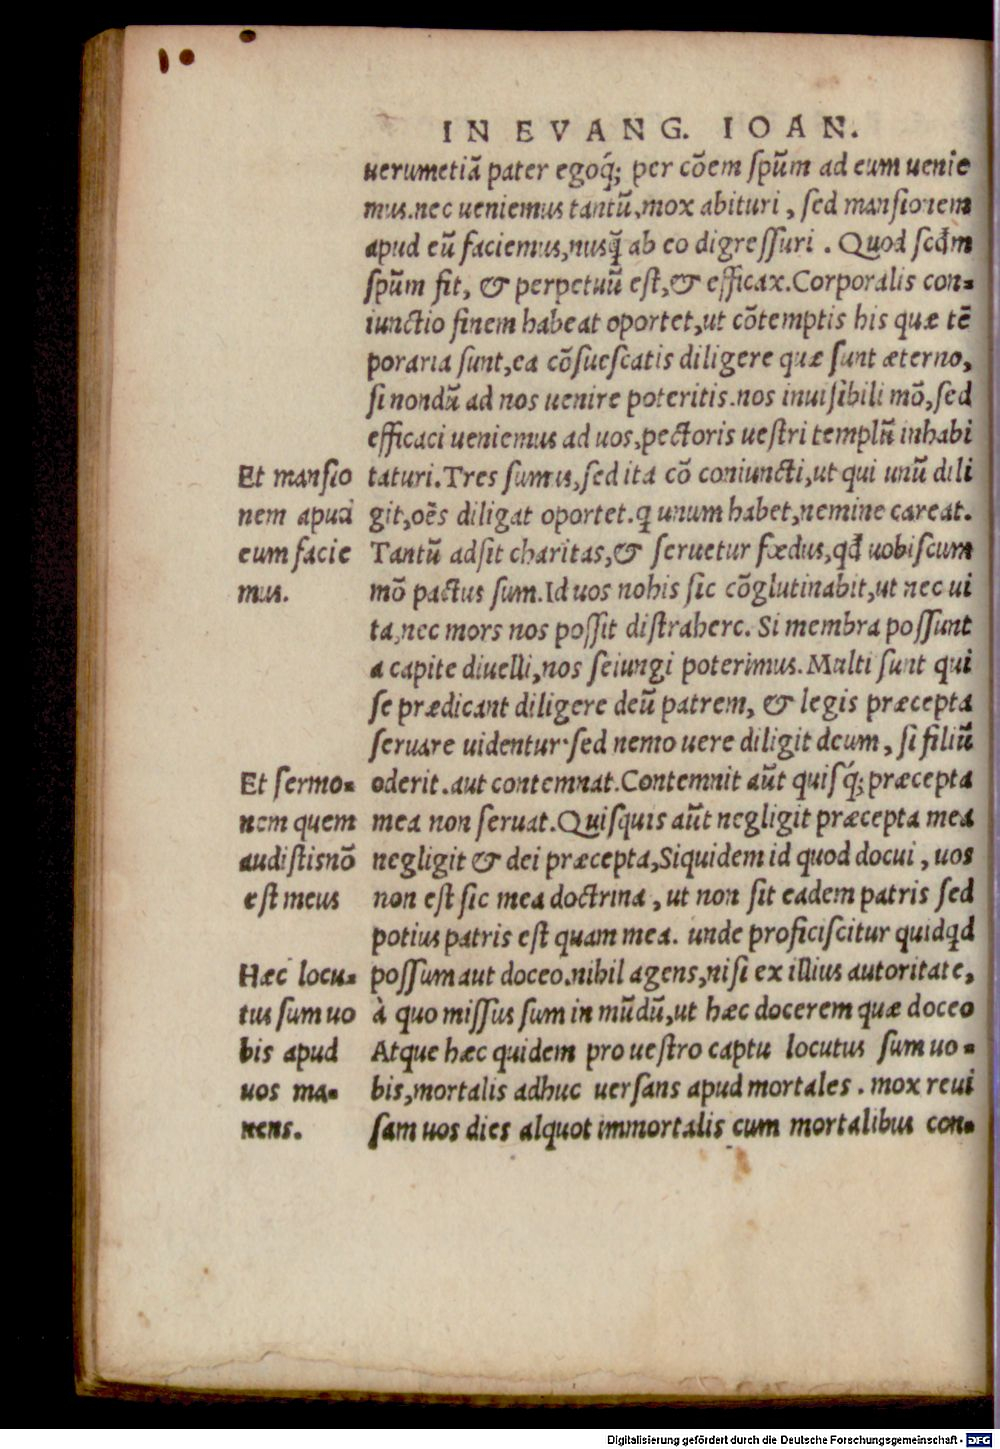 IN EVANG. IOAN.
uerumetiã pater egoq́; per cõem spũm ad eum uenie
mus.nec ueniemus tantũ,mox abituri, sed mansionem
apud eũ faciemus,nusq̃ ab eo digressuri. Quod scđm
spũm fit, & perpetuũ est,& efficax.Corporalis con-
iunctio finem habeat oportet,ut cõtemptis his quæ tẽ
poraria sunt,ea cõsuescatis diligere quæ sunt æterno,
si nondũ ad nos uenire poteritis.nos inuisibili mõ,sed
efficaci ueniemus ad uos,pectoris uestri templũ inhabi
Et mansio
nem apud
eum facie
mus.
taturi.Tres sumus,sed ita cõ coniuncti,ut qui unũ dili
git,oẽs diligat oportet.q̃ unum habet,nemine careat.
Tantũ adsit charitas,& seruetur fœdus,qđ uobiscum
mõ pactus sum.Id uos nobis sic cõglutinabit,ut nec ui
ta,nec mors nos possit distrahere. Si membra possunt
a capite diuelli,nos seiungi poterimus.Multi sunt qui
se prædicant diligere deũ patrem, & legis præcepta
seruare uidentur·sed nemo uere diligit deum, si filiũ
Et sermo-
nem quem
audistis nõ
est meus
oderit.aut contemnat.Contemnit aũt quisq́; præcepta
mea non seruat.Quisquis aũt negligit præcepta mea
negligit & dei præcepta,Siquidem id quod docui, uos
non est sic mea doctrina, ut non sit eadem patris sed
potius patris est quam mea. unde proficiscitur quidqd
Hæc locu-
tus sum uo
bis apud
uos ma-
nens.
possum aut doceo.nihil agens,nisi ex illius autoritate,
à quo missus sum in mũdũ,ut hæc docerem quæ doceo
Atque hæc quidem pro uestro captu locutus sum uo-
bis,mortalis adhuc uersans apud mortales. mox reui
sam uos dies alquot immortalis cum mortalibus con-
Digitalisierung gefördert durch die Deutsche Forschungsgemeinschaft - DFG